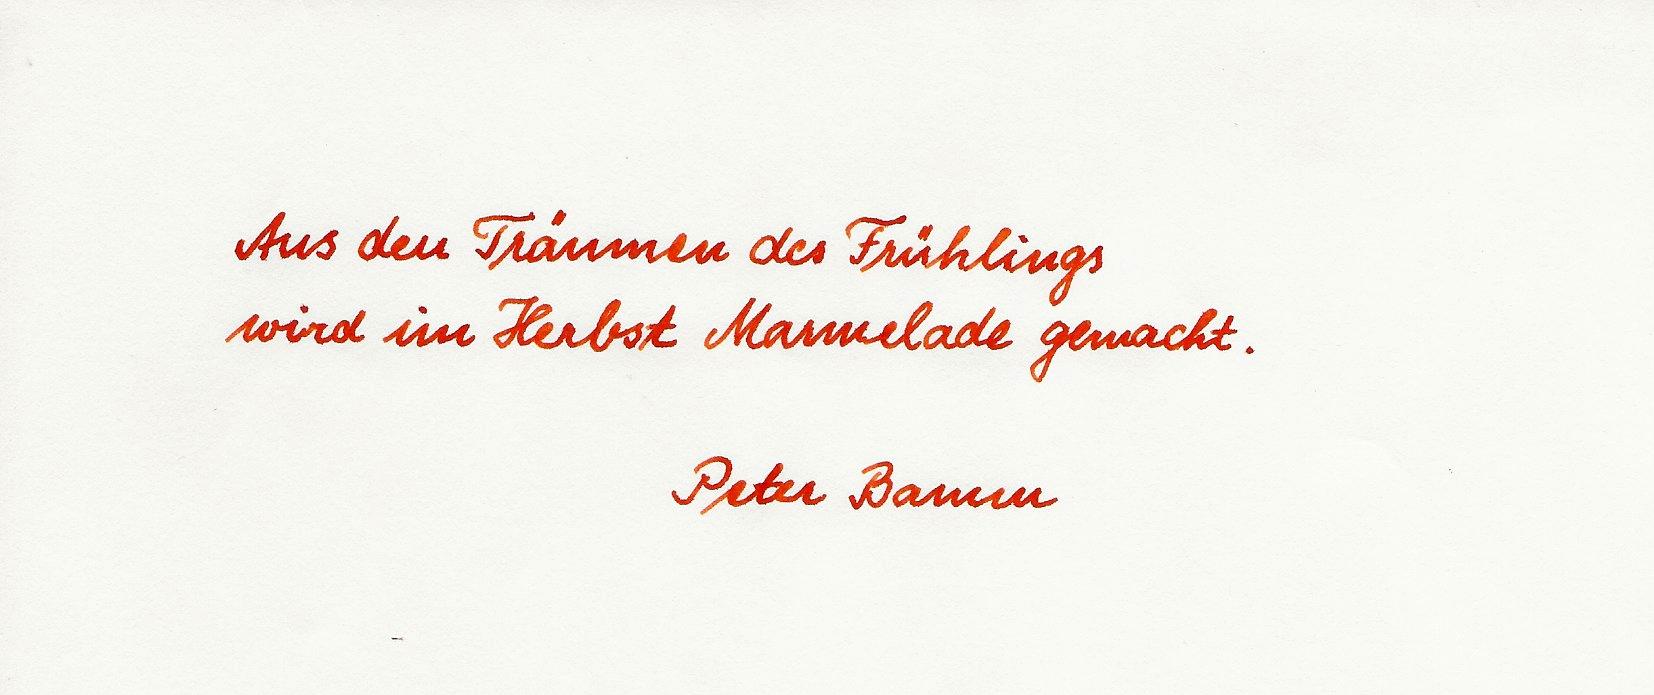 Aus den Träumen des Frühlings
wird im Herbst Marmelade gemacht.
Peter Bamm